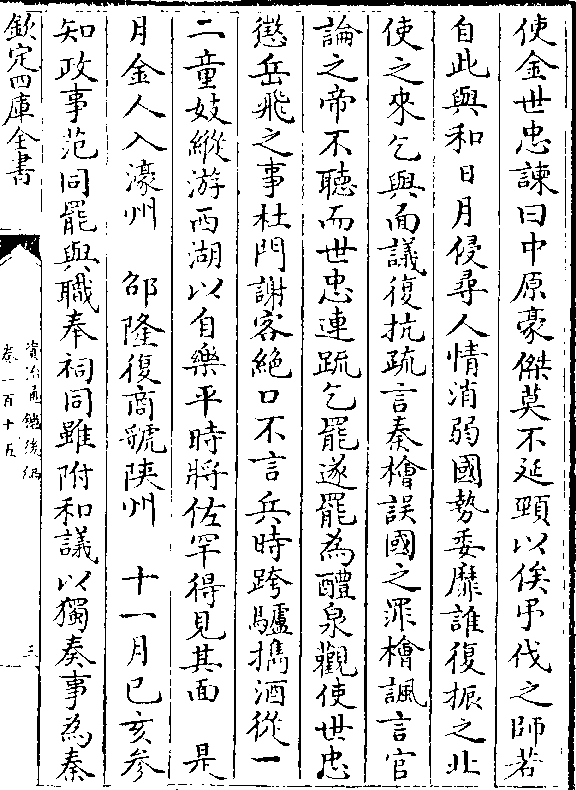 使金世忠諫曰中原豪傑莫不延頸以俟弔伐之師若
自此與和日月侵尋人情消弱國勢委靡誰復振之北
使之來乞與面議復抗疏言秦檜誤國之罪檜諷言官
論之帝不聽而世忠連疏乞罷遂罷為醴泉觀使世忠
懲岳飛之事杜門謝客絶口不言兵時跨驢攜酒從一
二童妓縱游西湖以自樂平時將佐罕得見其面　是
月金人入濠州　邵隆復商虢陜州　十一月己亥参
知政事范同罷與職奉祠同雖附和議以獨奏事為秦
欽定四庫全書
資治通鑑後編
卷一百十五
三